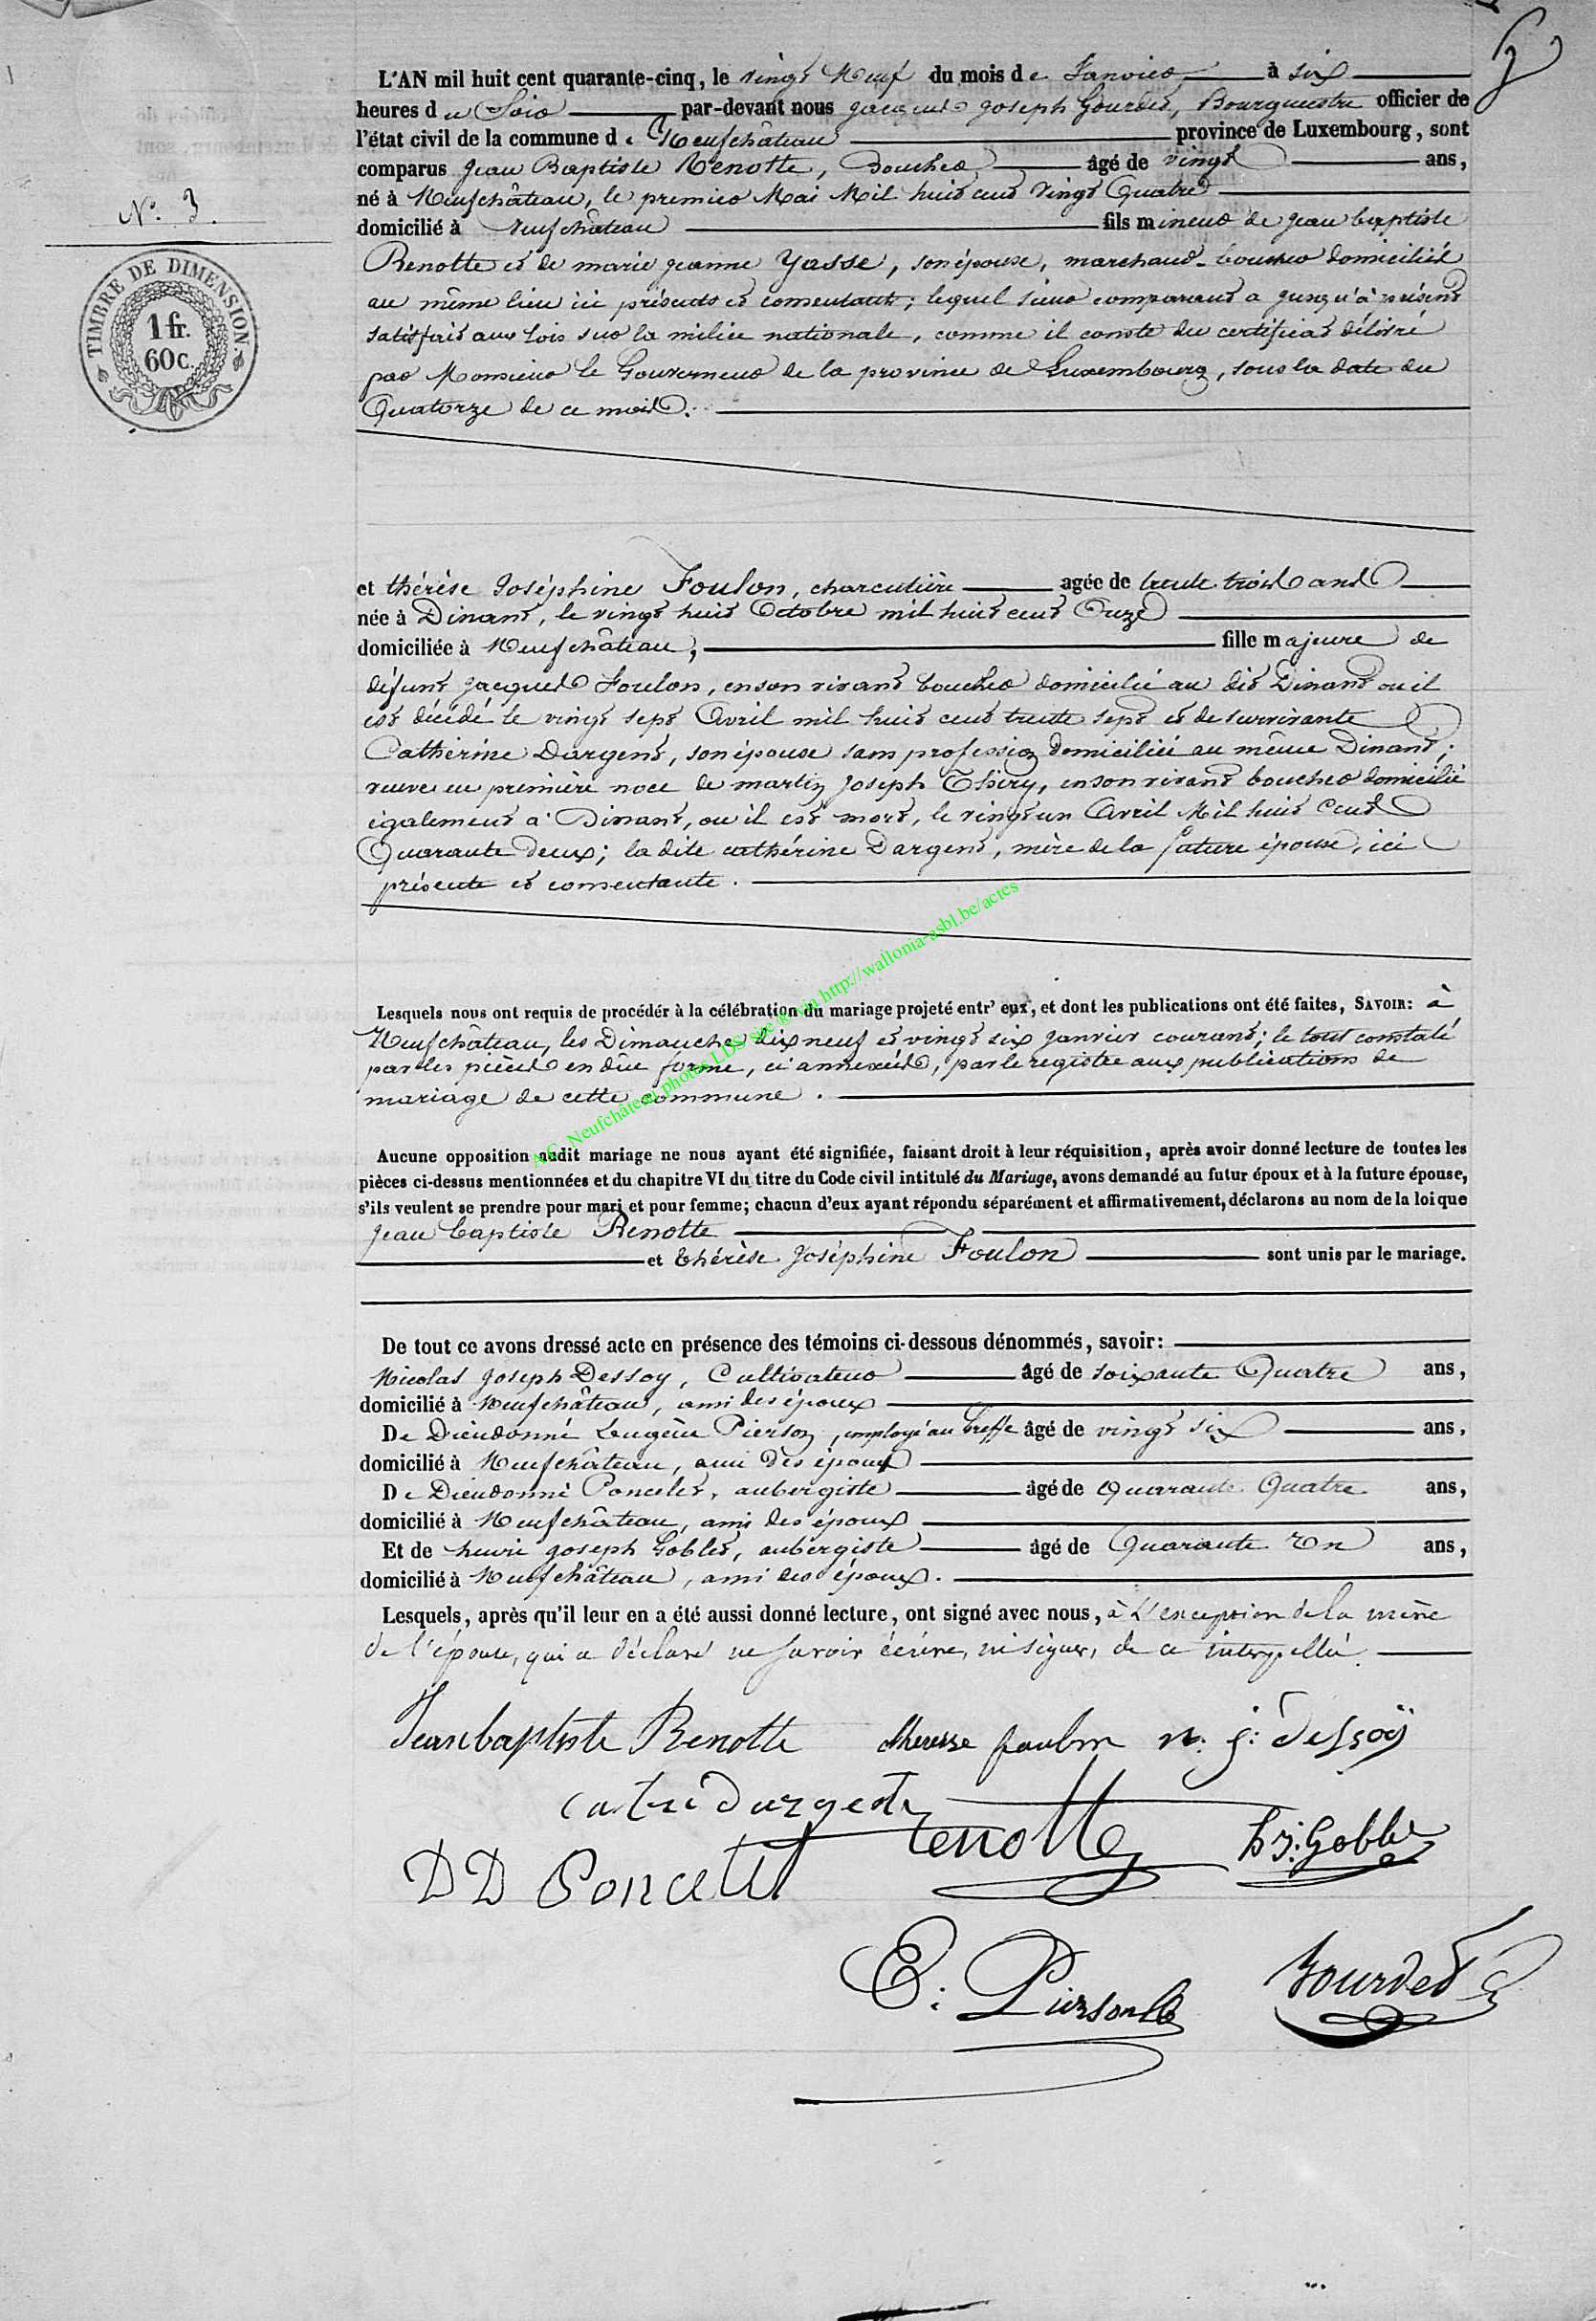 L'AN mil huit cent quarante-cinq, le vingt Neuf du mois de Janvier à six
heures du Soir par-devant nous Jacques Joseph Gourdet, Bourgmestre officier de
l'état civil de la commune de Neufchâteau province de Luxembourg, sont
comparus Jean Baptiste Renotte, Boucher, âgé de vingt ans,
né à Neufchâteau, le premier Mai Mil huit cent Vingt Quatre
N° 3.
domicilié à Neufchâteau fils mineur de Jean baptiste
Renotte et de marie jeanne Yasse, son épouse, marchand-boucher domiciliés
au même lieu ici présents et consentants; lequel sieur comparant a jusqu'à présent
satisfait aux lois sur la milice nationale, comme il conste du certificat délivré
par Monsieur le Gouverneur de la province de Luxembourg, sous la date du
Quatorze de ce mois.
TIMBRE DE DIMENSION.
1 fr.
60c.
et thérèse Joséphine Foulon, charcutière agée de trente trois ans
née à Dinant, le vingt huit Octobre mil huit cent Onze
domiciliée à Neufchâteau, fille majeure de
défunt Jacques Foulon, en son vivant boucher domicilié au dit Dinant ou il
est décédé le vingt sept Avril mil huit cent trente sept et de survivante
Cathérine Dargent, son épouse sans profession domiciliée au même Dinant;
veuve en première noce de martin Joseph Thiry, en son vivant boucher domicilié
également à Dinant, ou il est mort, le vingt un Avril Mil huit Cent
Quarante deux; la dite cathérine Dargent, mère de la future épouse, ici
présente et consentante.
Lesquels nous ont requis de procédér à la célébration du mariage projeté entr' eux, et dont les publications ont été faites, SAVOIR: à
Neufchâteau, les Dimanches dix neuf et vingt six janvier courant; le tout constaté
par les pièces en dûe forme, ci annexées, par le registre aux publications de
mariage de cette commune.
A.C. Neufchâteau photos LDS site & via http://wallonia-asbl.be/actes
Aucune opposition audit mariage ne nous ayant été signifiée, faisant droit à leur réquisition, après avoir donné lecture de toutes les
pièces ci-dessus mentionnées et du chapitre VI du titre du Code civil intitulé du Mariage, avons demandé au futur époux et à la future épouse,
s'ils veulent se prendre pour mari et pour femme; chacun d'eux ayant répondu séparément et affirmativement, déclarons au nom de la loi que
Jean baptiste Renotte
et Thérèse Joséphine Foulon sont unis par le mariage.
De tout ce avons dressé acte en présence des témoins ci-dessous dénommés, savoir:
Nicolas Joseph Dessoy, Cultivateur âgé de soixante Quatre ans,
domicilié à Neufchâteau, ami des époux
De Dieudonné Eugène Pierson, employé au Greffe âgé de vingt six ans,
domicilié à Neufchâteau, ami des époux
De Dieudonné Poncelet, aubergiste âgé de Quarante Quatre ans,
domicilié à Neufchâteau, ami des époux
Et de henri Joseph Goblet, aubergiste âgé de Quarante Un ans,
domicilié à Neufchâteau, ami des époux.
Lesquels, après qu'il leur en a été aussi donné lecture, ont signé avec nous, à l'exception de la mère
de l'épouse, qui a déclaré ne savoir écrire, ni signer, de ce interpellée.
Jean baptiste Renotte theresse foulon n. j: dessoÿ
catri dargent
Renotte h j: Goblet
DD Poncelet
E: Pierson
Gourdet